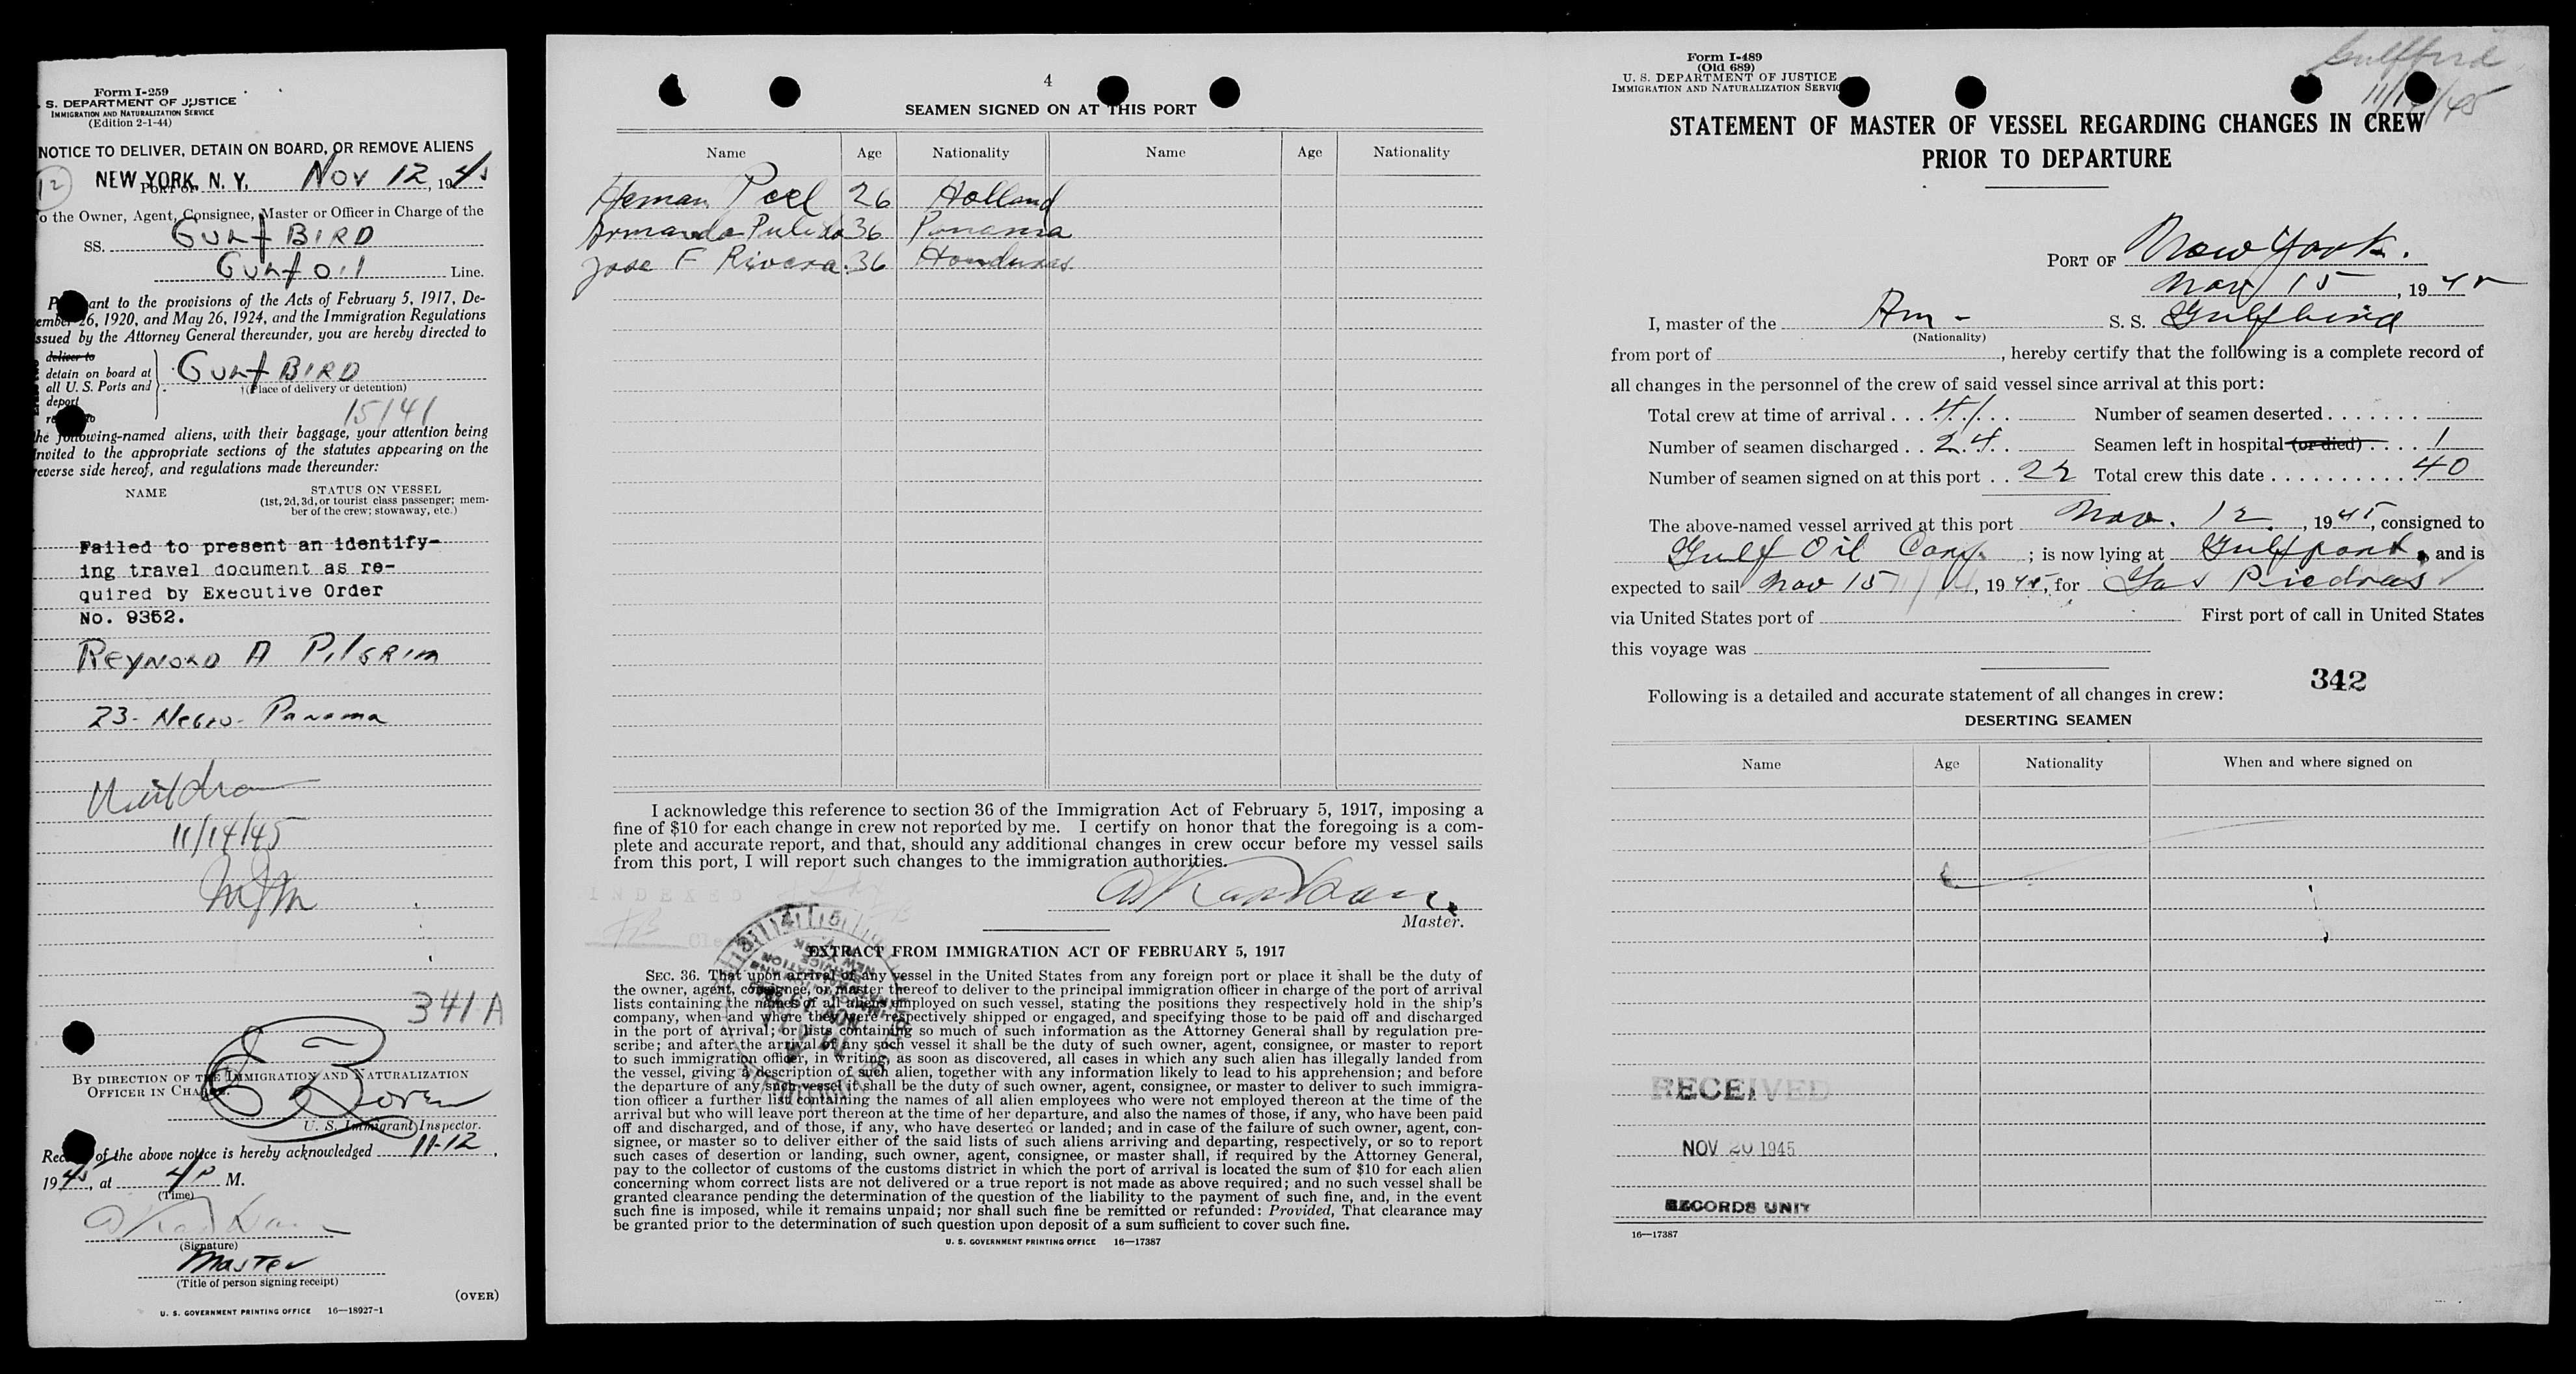 Form I-259
S. DEPARTMENT OF JUSTICE
IMMIGRATION AND NATURALIZATION SERVICE
(Edition 2-1-44)
NOTICE TO DELIVER, DETAIN ON BOARD, OR REMOVE ALIENS
12 NEW YORK, N. Y. Nov 12, 1945
o the Owner, Agent, Consignee, Master or Officer in Charge of the
SS. GULF BIRD
GULF OIL Line.
P ant to the provisions of the Acts of February 5, 1917, De-
ember 26, 1920, and May 26, 1924, and the Immigration Regulations
issued by the Attorney General thereunder, you are hereby directed to
deliver to
detain on board at
all U. S. Ports and
deport
GULF BIRD
†(Place of delivery or detention)
15/41
he following-named aliens, with their baggage, your attention being
invited to the appropriate sections of the statutes appearing on the
reverse side hereof, and regulations made thereunder:
NAME STATUS ON VESSEL
(1st, 2d, 3d, or tourist class passenger; mem-
ber of the crew; stowaway, etc.)
Failed to present an identify-
ing travel document as re-
quired by Executive Order
No. 9352.
REYNOLD A PILGRIM
23- Negro- Panama
11/14/45
341A
BY DIRECTION OF THE IMMIGRATION AND NATURALIZATION
OFFICER IN CHARGE.
U. S. Immigrant Inspector.
Rec of the above notice is hereby acknowledged 11-12,
1945, at 4 P M.
(Time)
(Signature)
Master
(Title of person signing receipt)
(OVER)
U. S. GOVERNMENT PRINTING OFFICE 16—18927-1
4
SEAMEN SIGNED ON AT THIS PORT
Name Age Nationality Name Age Nationality
Heman Peel 26 Holland
Armando Pulido 36 Panama
Jose F Rivera 36 Honduras
I acknowledge this reference to section 36 of the Immigration Act of February 5, 1917, imposing a
fine of $10 for each change in crew not reported by me. I certify on honor that the foregoing is a com-
plete and accurate report, and that, should any additional changes in crew occur before my vessel sails
from this port, I will report such changes to the immigration authorities.
INDEXED
Master.
EXTRACT FROM IMMIGRATION ACT OF FEBRUARY 5, 1917
SEC. 36. That upon arrival of any vessel in the United States from any foreign port or place it shall be the duty of
the owner, agent, consignee, or master thereof to deliver to the principal immigration officer in charge of the port of arrival
lists containing the names of all aliens employed on such vessel, stating the positions they respectively hold in the ship's
company, when and where they were respectively shipped or engaged, and specifying those to be paid off and discharged
in the port of arrival; or lists containing so much of such information as the Attorney General shall by regulation pre-
scribe; and after the arrival of any such vessel it shall be the duty of such owner, agent, consignee, or master to report
to such immigration officer, in writing, as soon as discovered, all cases in which any such alien has illegally landed from
the vessel, giving a description of such alien, together with any information likely to lead to his apprehension; and before
the departure of any such vessel it shall be the duty of such owner, agent, consignee, or master to deliver to such immigra-
tion officer a further list containing the names of all alien employees who were not employed thereon at the time of the
arrival but who will leave port thereon at the time of her departure, and also the names of those, if any, who have been paid
off and discharged, and of those, if any, who have deserted or landed; and in case of the failure of such owner, agent, con-
signee, or master so to deliver either of the said lists of such aliens arriving and departing, respectively, or so to report
such cases of desertion or landing, such owner, agent, consignee, or master shall, if required by the Attorney General,
pay to the collector of customs of the customs district in which the port of arrival is located the sum of $10 for each alien
concerning whom correct lists are not delivered or a true report is not made as above required; and no such vessel shall be
granted clearance pending the determination of the question of the liability to the payment of such fine, and, in the event
such fine is imposed, while it remains unpaid; nor shall such fine be remitted or refunded: Provided, That clearance may
be granted prior to the determination of such question upon deposit of a sum sufficient to cover such fine.
U. S. GOVERNMENT PRINTING OFFICE 16—17387
Form I-489
(Old 689)
U. S. DEPARTMENT OF JUSTICE
IMMIGRATION AND NATURALIZATION SERVIC
Gulfbird
STATEMENT OF MASTER OF VESSEL REGARDING CHANGES IN CREW
PRIOR TO DEPARTURE
PORT OF New York.
Nov 15, 1945
I, master of the Am- S. S. Gulfbird
(Nationality)
from port of , hereby certify that the following is a complete record of
all changes in the personnel of the crew of said vessel since arrival at this port:
Total crew at time of arrival . . . 41 Number of seamen deserted . . . . . . .
Number of seamen discharged . . 24 Seamen left in hospital (or died) . . . . 1
Number of seamen signed on at this port . . 22 Total crew this date . . . . . . . . . . . 40
The above-named vessel arrived at this port Nov. 12, 1945, consigned to
Gulf Oil Corp. ; is now lying at Gulfport, and is
expected to sail Nov 15, 1945, for Las Piedras
via United States port of First port of call in United States
this voyage was
342
Following is a detailed and accurate statement of all changes in crew:
DESERTING SEAMEN
Name Age Nationality When and where signed on
RECEIVED
NOV 20 1945
RECORDS UNIT
16—17387